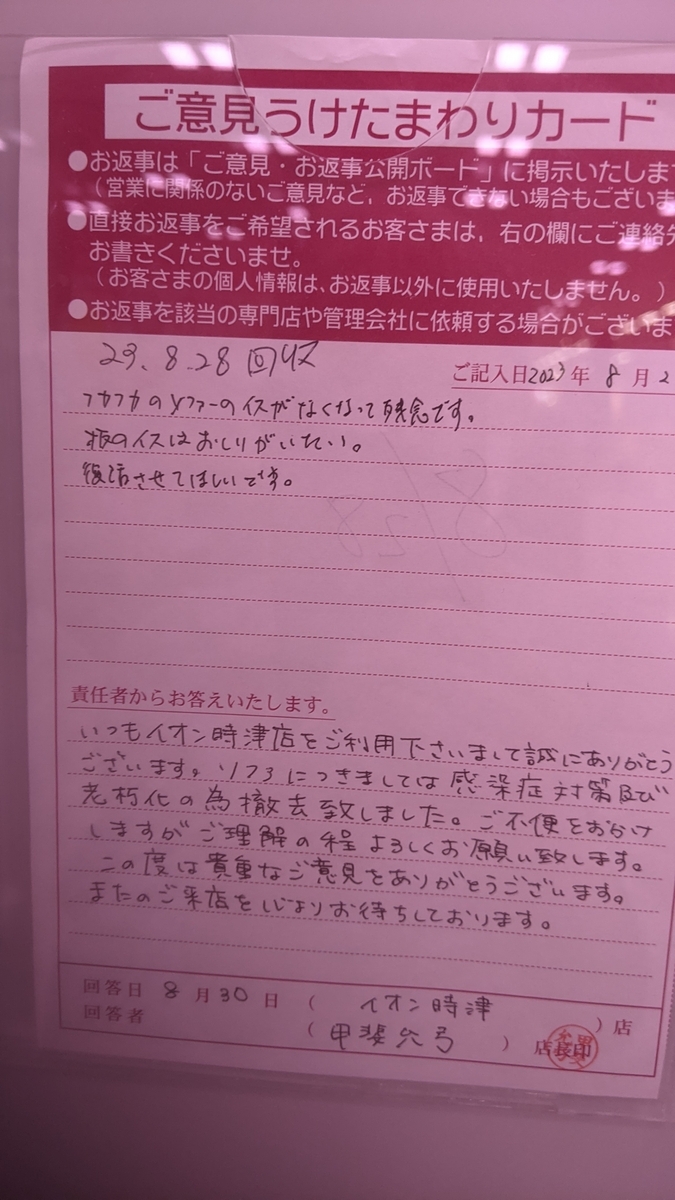 ご意見うけたまわりカード
●お返事は「ご意見・お返事公開ボード」に掲示いたします
(営業に関係のないご意見など、お返事できない場合もございま
●直接お返事をご希望されるお客さまは、右の欄にご連絡先
お書きくださいませ。
(お客さまの個人情報は、お返事以外に使用いたしません。)
●お返事を該当の専門店や管理会社に依頼する場合がございま
23.8.28 回収
ご記入日2023年 8月2
フカフカのソファーのイスがなくなって残念です。
板のイスはおしりがいたい。
復活させてほしいです。
8/28
責任者からお答えいたします。
いつもイオン時津店をご利用下さいまして誠にありがとう
ございます。ソファにつきましては感染症対策及び
老朽化の為撤去致しました。ご不便をおかけ
しますがご理解の程よろしくお願い致します。
この度は貴重なご意見をありがとうございます。
またのご来店を心よりお待ちしております。
回答日 8月30日 ( イオン時津 )店
回答者 ( 甲斐 弓 ) 店長印